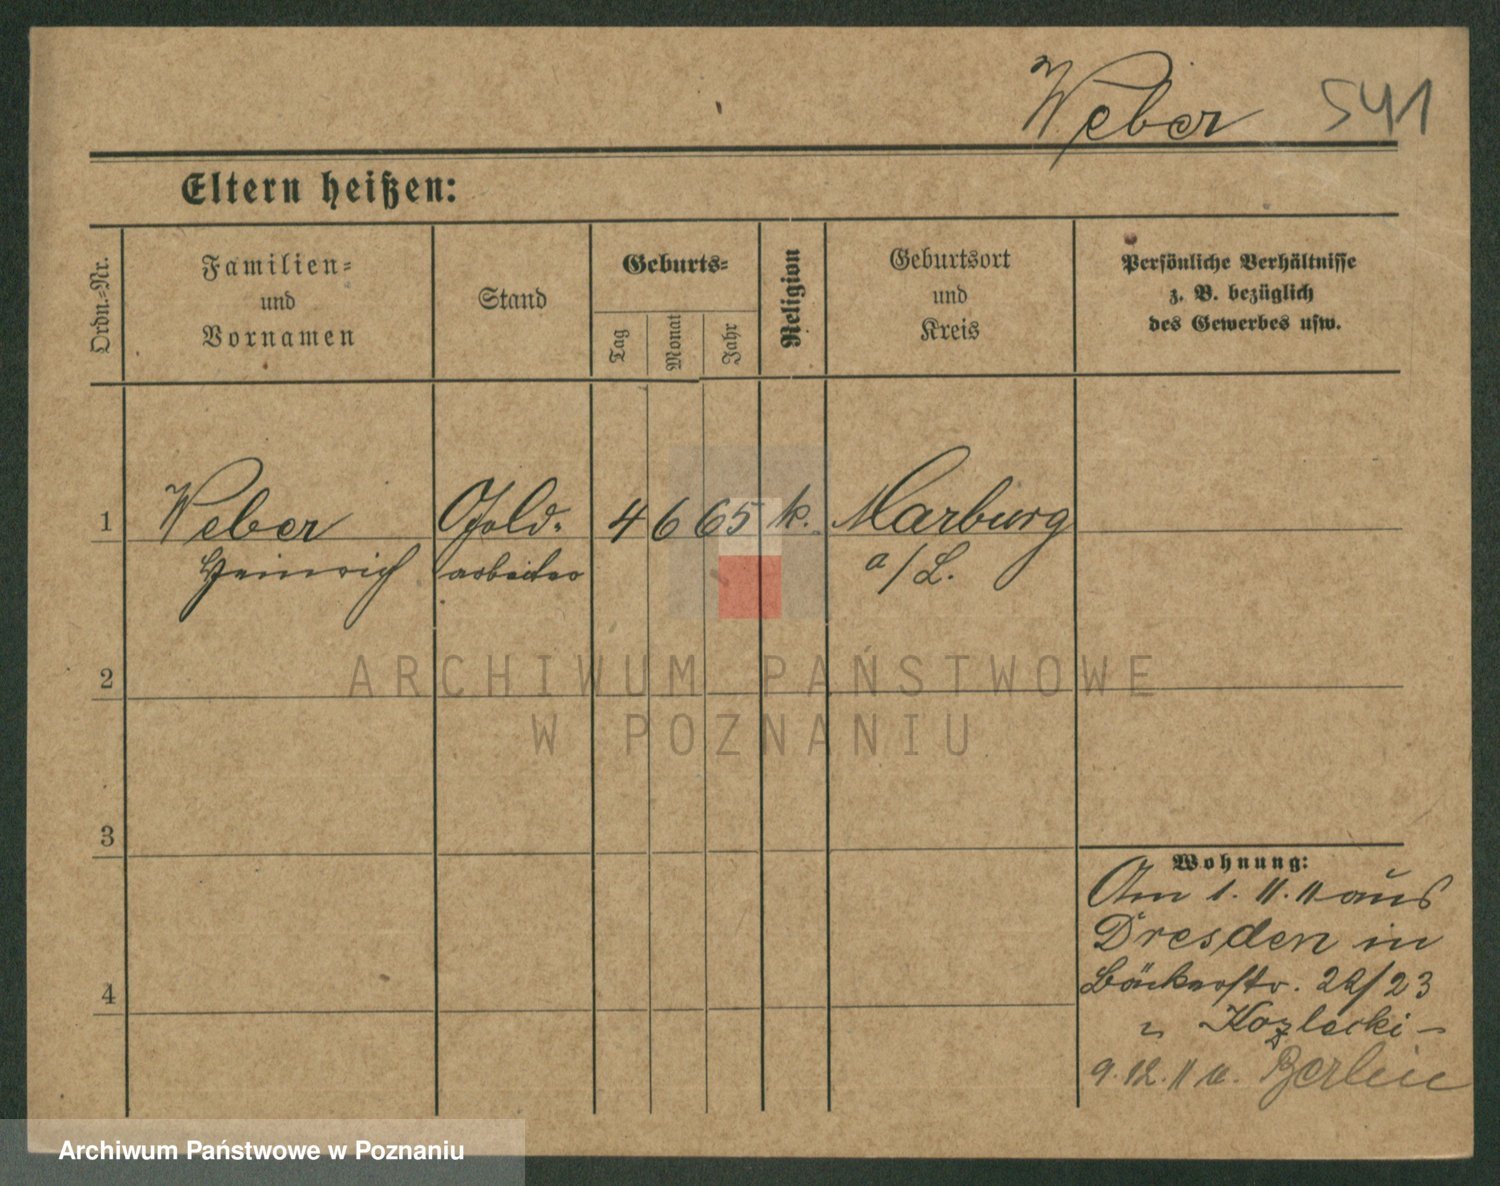 Weber 541
Eltern heißen:
Ordn.=Nr.
Familien=
und
Vornamen
Stand
Geburts=
Tag
Monat
Jahr
Religion
Geburtsort
und
Kreis
Persönliche Verhältnisse
z. B. bezüglich
des Gewerbes usw.
1 Weber Gold= 4 6 65 k. Marburg
Heinrich arbeiter a/L.
2
ARCHIWUM PAŃSTWOWE
W POZNANIU
3
Wohnung:
Am 1. 11. 11 aus
Dresden in
4 Bäckerstr. 22/23
Kozlecki
9. 12. 11 n. Berlin
Archiwum Państwowe w Poznaniu